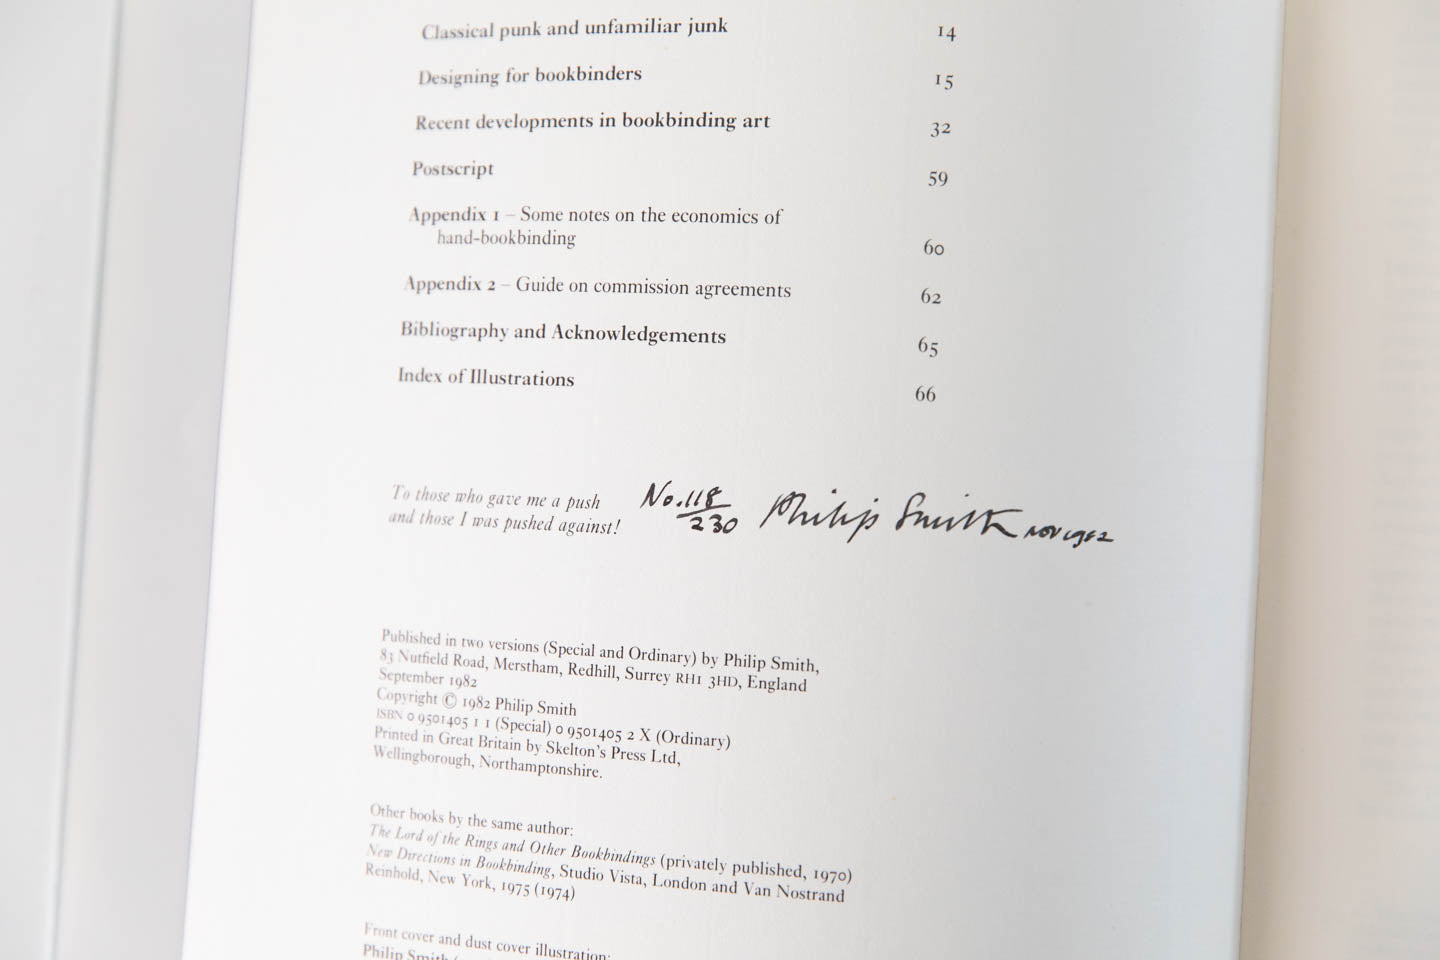 Classical punk and unfamiliar junk 14
Designing for bookbinders 15
Recent developments in bookbinding art 32
Postscript 59
Appendix 1 – Some notes on the economics of
hand-bookbinding 60
Appendix 2 – Guide on commission agreements 62
Bibliography and Acknowledgements 65
Index of Illustrations 66
To those who gave me a push
and those I was pushed against!
No. 118/230 Philip Smith Nov 1982
Published in two versions (Special and Ordinary) by Philip Smith,
83 Nutfield Road, Merstham, Redhill, Surrey RH1 3HD, England
September 1982
Copyright © 1982 Philip Smith
ISBN 0 9501405 1 1 (Special) 0 9501405 2 X (Ordinary)
Printed in Great Britain by Skelton's Press Ltd,
Wellingborough, Northamptonshire.
Other books by the same author:
The Lord of the Rings and Other Bookbindings (privately published, 1970)
New Directions in Bookbinding, Studio Vista, London and Van Nostrand
Reinhold, New York, 1975 (1974)
Front cover and dust cover illustration:
Philip Smith